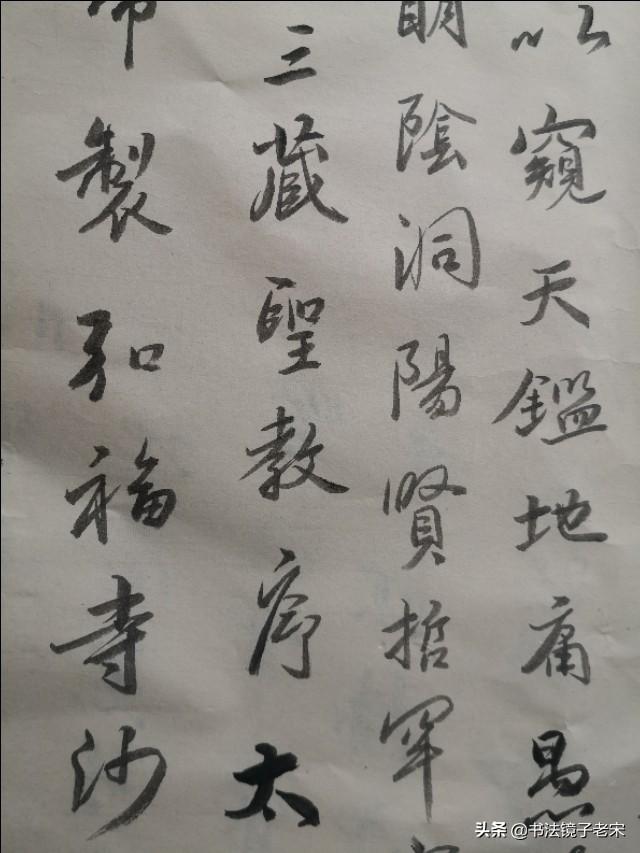 以窺天鑑地庸愚
明陰洞陽賢哲罕
三藏聖教序太
帝製弘福寺沙
头条 @书法镜子老宋